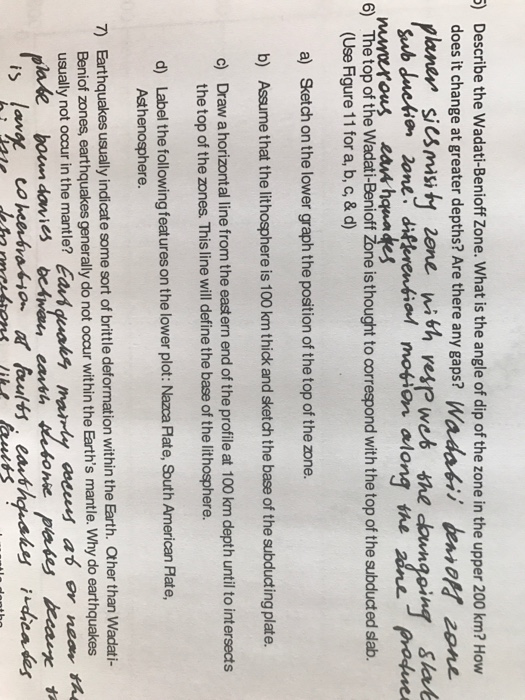 5) Describe the Wadati-Benioff Zone. What is the angle of dip of the zone in the upper 200 km? How
does it change at greater depths? Are there any gaps? Wadabii benioff zone
planer siesmisity zone with respwct the downgoing slab
subduction zone. differential motion along the zone produce
numerous earthquakes
6) The top of the Wadati-Benioff Zone is thought to correspond with the top of the subducted slab.
(Use Figure 11 for a, b, c, & d)
a) Sketch on the lower graph the position of the top of the zone.
b) Assume that the lithosphere is 100 km thick and sketch the base of the subducting plate.
c) Draw a horizontal line from the eastern end of the profile at 100 km depth until to intersects
the top of the zones. This line will define the base of the lithosphere.
d) Label the following features on the lower plot: Nazca Plate, South American Plate,
Asthenosphere.
7) Earthquakes usually indicate some sort of brittle deformation within the Earth. Other than Wadati-
Beniof zones, earthquakes generally do not occur within the Earth's mantle. Why do earthquakes
usually not occur in the mantle? Earthquakes mainly occurs at or near the
boundaries between earth plates because
is large concentration of faults. earthquakes indicates
like faults